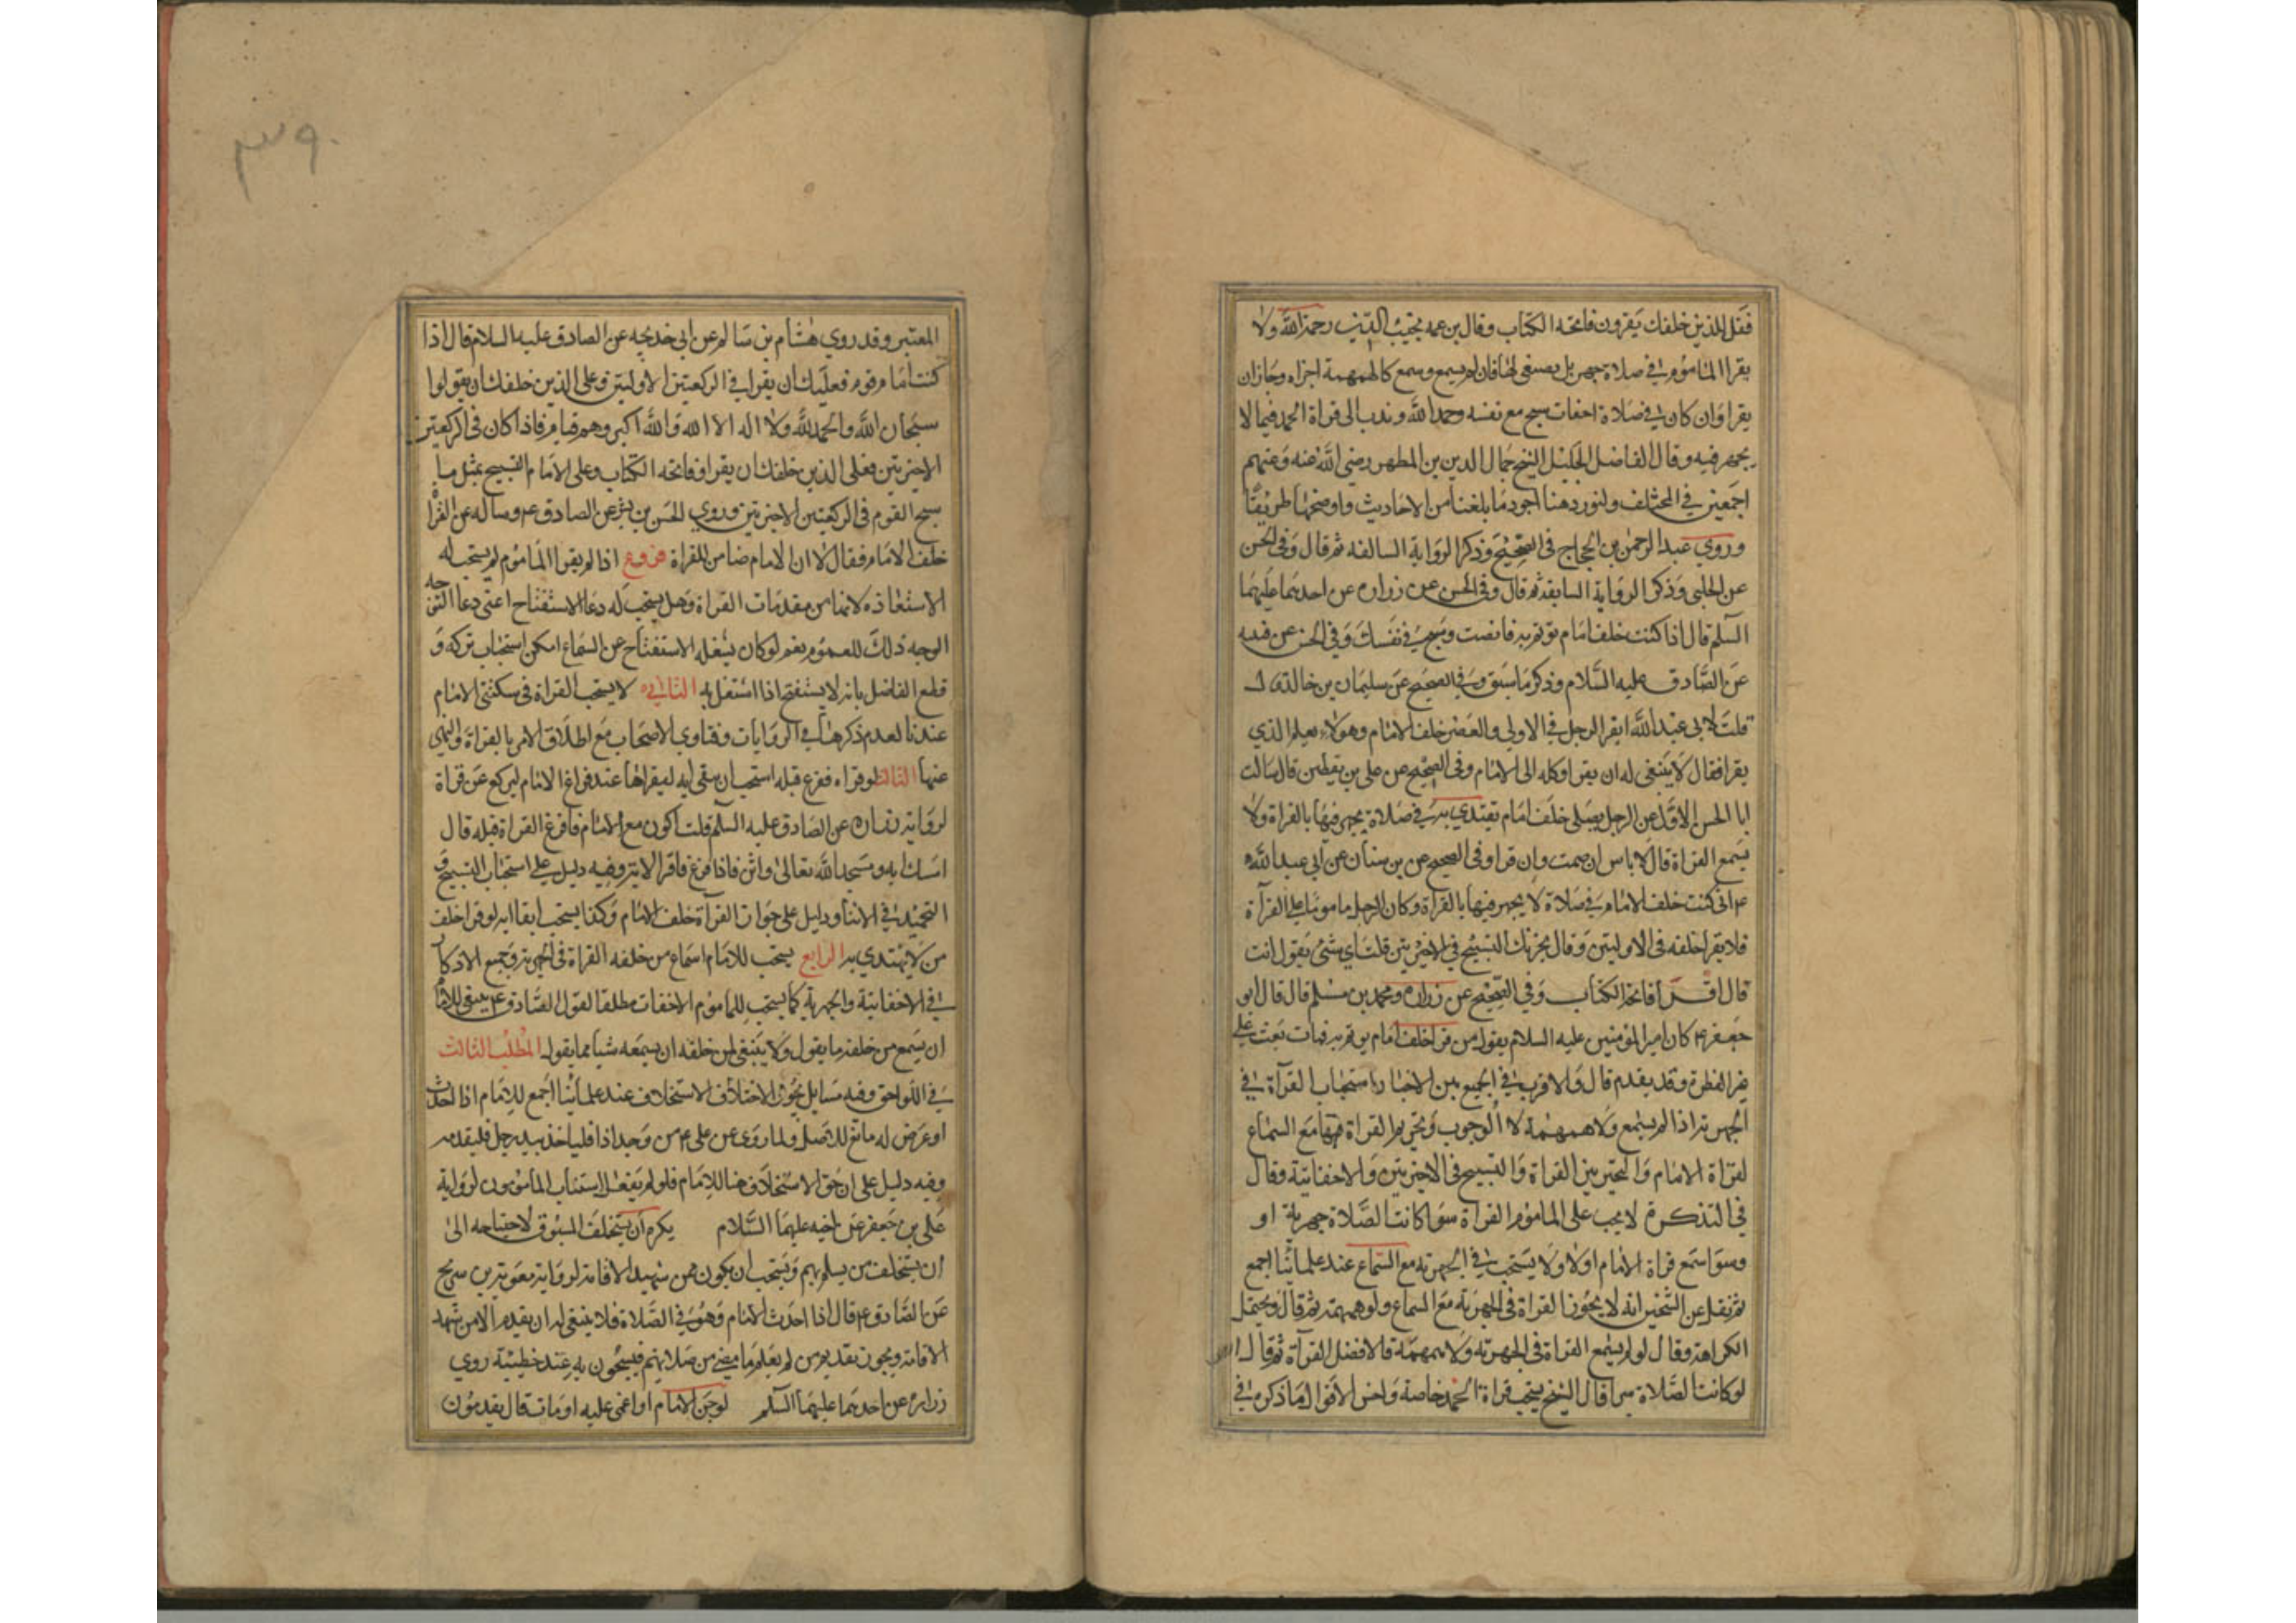 فقل للذين خلفك يقرون فاتحه الكتاب وقال بن عمه نجيب الدين رحمة الله ولا
يقرا الماموم في صلاة جهر بل يصغى لها فان لم يسمع وسمع كالهمهمة اجزاه وجازان
يقرا وان كان في صلاة اخفات سبح مع نفسه وحمد الله وندب الى قراة الحمد فيما لا
يجهر فيه وقال الفاضل الجليل الشيخ جمال الدين بن المطهر رضي الله عنه وعنهم
اجمعين في المختلف ولنورد هنا اجود ما بلغنا من الاحاديث واوضحها طريقا
وروي عبد الرحمن بن الحجاج في الصحيح وذكر الرواية السالفه ثم قال وفي الحسن
عن الحلبي وذكر الرواية السابقة ثم قال وفي الحسن عن زراره عن احدهما عليهما
السلم قال اذا كنت خلف امام توتم به فانصت وسبح في نفسك وفي الحسن عن قتيبه
عن الصادق عليه السلام وذكر ما سبق وفي الصحيح عن سليمان بن خالد قال
قلت لابي عبد الله ايقرا الرجل في الاولى والعصر خلف الامام وهو لا يعلم الذي
يقرا فقال لا ينبغى له ان يقرا وكله الى الامام وفي الصحيح عن علي بن يقطين قال سالت
ابا الحسن الاول عن الرجل يصلي خلف امام يقتدي به في صلاة يجهر فيها بالقراة ولا
يسمع القراة قال لا باس ان صمت وان قرا وفي الصحيح عن بن سنان عن ابي عبد الله
ع ان كنت خلف الامام في صلاة لا يجهر فيها بالقراة وكان الرجل مامونا على القرآة
فلا يقرا خلفه في الاوليتين وقال يجزيك التسبيح في الاخيرتين قلت اي شئ يقول انت
قال اقرا فاتحة الكتاب وفي الصحيح عن زراره ومحمد بن مسلم قال قال ابو
جعفر ع كان امير المؤمنين عليه السلام يقول من قرا خلف امام يوتم به فمات بعث على
غير الفطرة وقد يقدم قال والاقرب في الجميع بين الاخبار استحباب القرآة في
الجهرية اذا لم يسمع ولا همهمة لا الوجوب وتحريم القراة فيها مع السماع
لقراة الامام والتخيير بين القراة والتسبيح في الاخيرتين والاخفاتية وقال
في التذكرة لا يجب على الماموم القراة سوا كانت الصلاة جهرية او
وسوا سمع قراة الامام اولا ولا يستحب في الجهرية مع السماع عند علمائنا اجمع
ثم نقل عن الشيخين انه لا يجوز القراة في الجهرية مع السماع ولو همهمة ثم قال ويحتمل
الكراهة وقال لو لم يسمع القراة في الجهرية ولا همهمة فالافضل القرآة ثم قال
لو كانت الصلاة سرا قال الشيخ يستحب قراة الحمد خاصة واحسن الاقوال ما ذكره في
٣٩٠
المعتبر وقد روي هشام بن سالم عن ابي خديجه عن الصادق عليه السلام قال اذا
كنت امام قوم فعليك ان يقرا في الركعتين الاوليتين وعلى الذين خلفك ان يقولوا
سبحان الله والحمد لله ولا اله الا الله والله اكبر وهم قيام فاذا كان في الركعتين
الاخيرتين فعلى الذين خلفك ان يقراو فاتحه الكتاب وعلى الامام التسبيح بمثل ما
سبح القوم في الركعتين الاخيرتين وروي الحسن بن بشر عن الصادق ع وساله عن القرا
خلف الامام فقال لا ان الامام ضامن للقراة فروع اذا لم يقرا الماموم لم يستحب له
الاستعاذه لانها من مقدمات القراة وهل يستحب له دعا الاستفتاح اعنى دعا التوجه
الوجه ذلك للعموم نعم لو كان يشغله الاستفتاح عن السماع امكن استحباب تركه و
قطع الفاضل بانه لا يستفتح اذا اشتغل به الثانيه لا يستحب القراة في سكتتى الامام
عندنا لعدم ذكرها في الروايات وفتاوي الاصحاب مع اطلاق الامر بالقراة والنهي
عنها الثالث لو قراه ففرغ قبله استحب ان يبقى ايه ليقراها عند فراغ الامام ليركع عن قراة
لرواية زراره عن الصادق عليه السلم قلت اكون مع الامام فافرغ القراة قبله قال
امسك ايه ومسجد الله تعالى واثن فاذا فرغ فاقرا الاية وفيه دليل على استحباب التسبيح و
التحميد في الاثنا ودليل على جواز القرآة خلف الامام وكذا يستحب ابقا ايه لو قرا خلف
من لا يقتدي به الرابع يستحب للامام اسماع من خلفه القراة في الجهرية وجميع الاذكار
في الاخفاتية والجهرية كما يستحب للماموم الاخفات مطلقا لقول الصادق ع ينبغى للامام
ان يسمع من خلفه ما يقول ولا ينبغى لمن خلفه ان يسمعه شيا مما يقول المطلب الثالث
في اللواحق وفيه مسايل يجوز الاستخلاف عند علمائنا اجمع للامام اذا احدث
او عرض له مانع للاصل ولما روى عن علي ع من وجد اذا فلياخذ بيد رجل فليقدمه
وفيه دليل على ان حق الاستخلاف هنا للامام فلو لم يفعل استناب المامومون لرواية
علي بن جعفر عن اخيه عليهما السلام يكره ان يستخلف المسبوق لاحتياجه الى
ان يستخلف من يسلم بهم ويستحب ان يكون ممن شهيد الاقامة لرواية معوية بن سريح
عن الصادق ع قال اذا احدث الامام وهو في الصلاة فلا ينبغى له ان يقدم الا من شهد
الاقامة ويجوز تقديم من لم يعلم ما مضى من صلاتهم فيسبحون به عند خطيئة روي
زراره عن احدهما عليهما السلم لو جن الامام او اغمى عليه او مات قال يقدمون